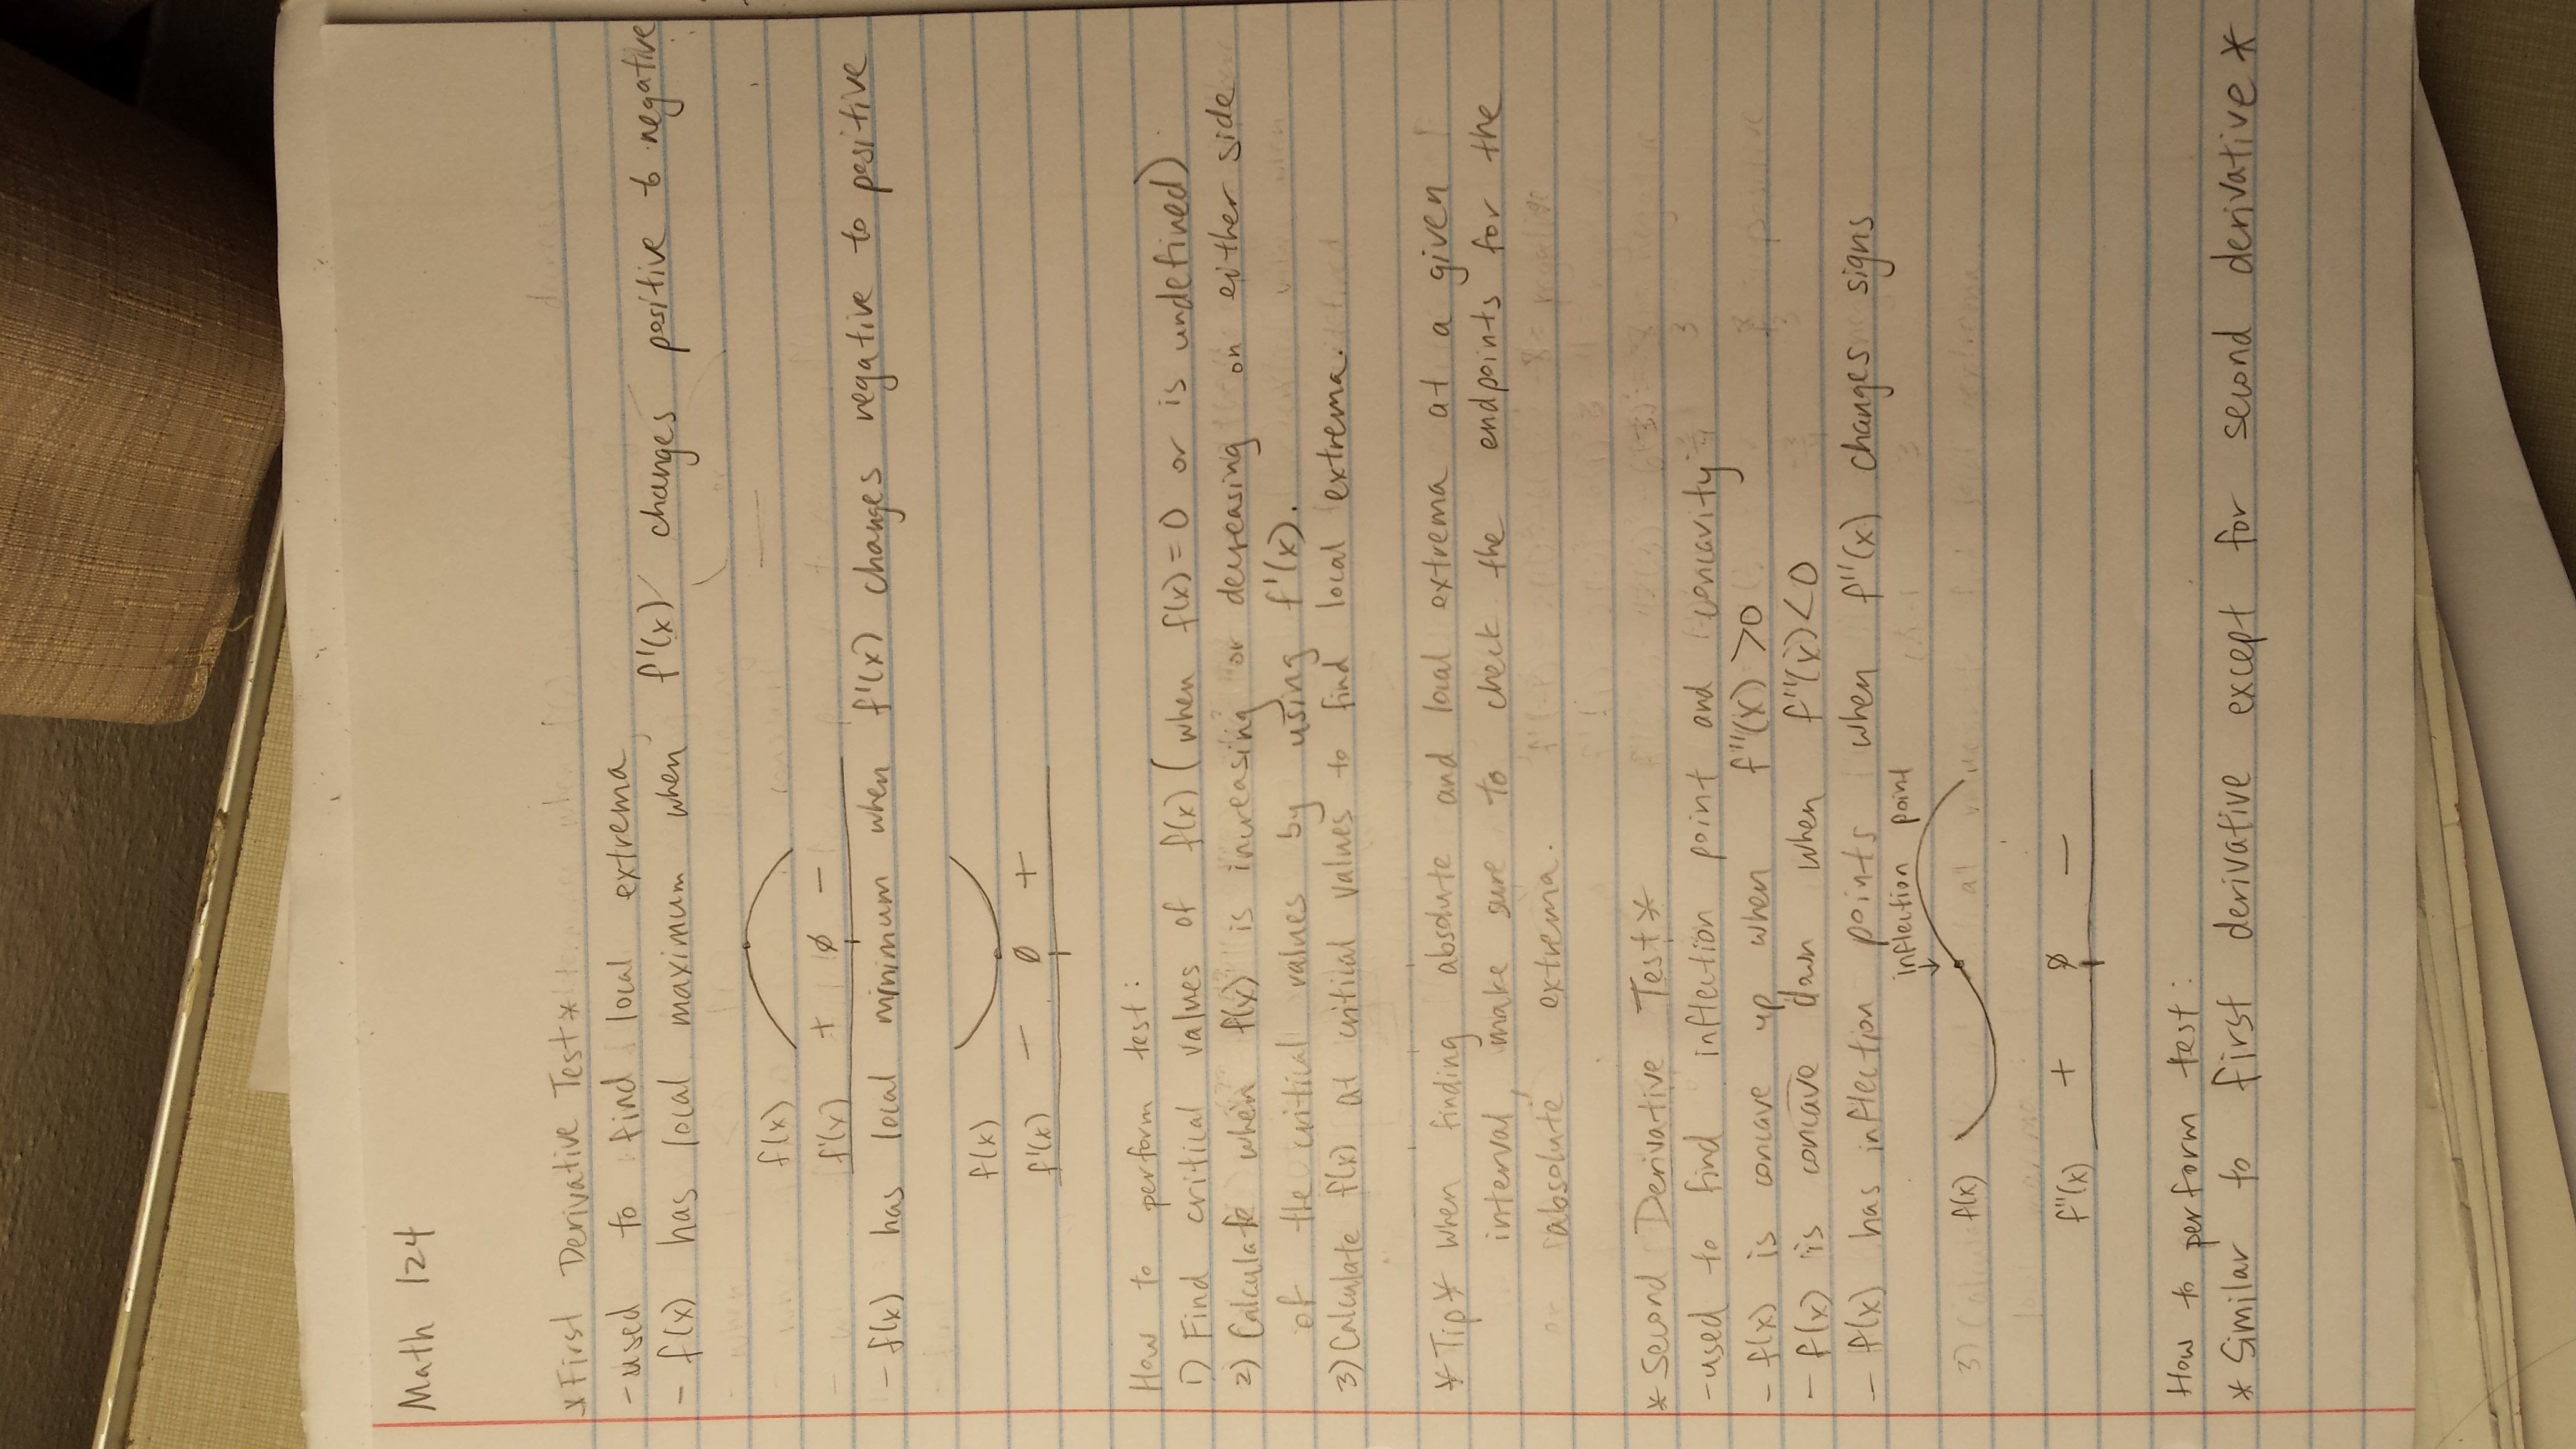 Math 124
*First Derivative Test*
- used to find local extrema
- f(x) has local maximum when f'(x) changes positive to negative
f(x)
f'(x) + 0 -
- f(x) has local minimum when f'(x) changes negative to positive
f(x)
f'(x) - 0 +
How to perform test:
1) Find critical values of f(x) (when f(x)=0 or is undefined)
2) Calculate when f(x) is increasing or decreasing on either side
of the critical values by using f'(x).
3) Calculate f(x) at critical values to find local extrema.
*Tip* when finding absolute and local extrema at a given
interval, make sure to check the endpoints for the
absolute extrema.
*Second Derivative Test*
- used to find inflection point and concavity
- f(x) is concave up when f''(x) >0
- f(x) is concave down when f''(x)<0
- f(x) has inflection points when f''(x) changes signs
inflection point
f(x)
f''(x) + 0 -
How to perform test:
* Similar to first derivative except for second derivative *